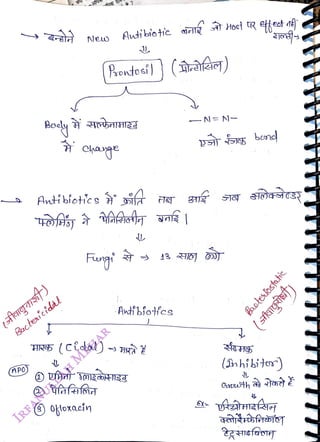 → इन्होने New Antibiotic बनाई जो Host पर effect नहीं डालती →
Prontosil (प्रोन्टोसिल)
Body में सल्फेनामाइड — N = N —
में change एजो रंजक bond
→ Antibiotics में क्रांति तब आई जब अलेक्जेंडर
फ्लेमिंग ने पेनिसिलीन बनाई।
Fungi से → 13 साल लगे
(जीवाणुनाशी)
Bactericidal
Bacteriostatic
Antibiotics
मारक (Cidal) → मारते हैं
(Inhibitor)
APO
① एमिनो ग्लाइकोसाइड
② पेनिसिलिन
③ Ofloxacin
Growth को रोकते हैं
Ex- एरिथ्रोमाइसिन
क्लोरेम्फेनिकोल
टेट्रासाइक्लिन
IRFANULLAH MEHAR